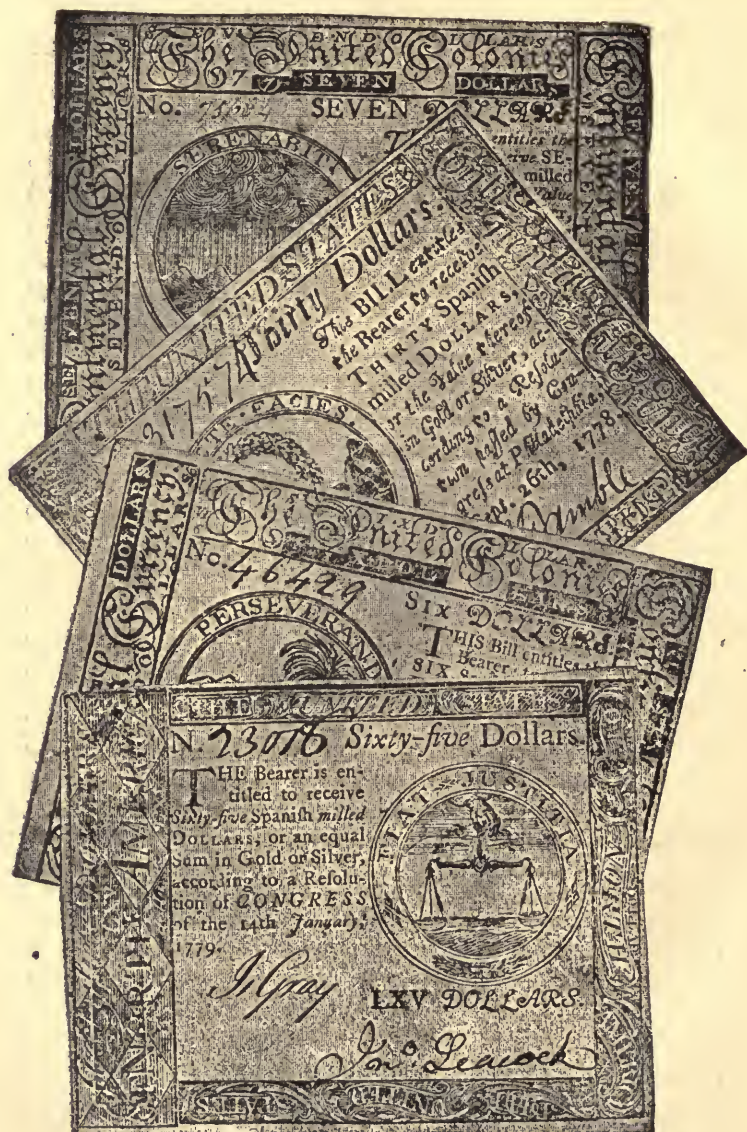 The United Colonies
SEVEN DOLLARS
No. SEVEN DOLLARS.
entitles the
SE-
milled
Value
SERENABIT.
DOLLARS
SEVEN
Continental Currency
Continental
THE UNITED STATES
317574 Thirty Dollars.
This BILL entitles
the Bearer to receive
THIRTY Spanish
milled DOLLARS,
or the Value thereof
in Gold or Silver, ac-
cording to a Resolu-
tion passed by Con-
gress at Philadelphia,
26th, 1778.
Gamble
FACIES.
The United Colonies
No. 46429
SIX DOLLARS.
THIS Bill entitles
Bearer
SIX
PERSEVERAND
DOLLARS
Currency.
THE UNITED STATES
N. 23018 Sixty-five Dollars.
THE Bearer is en-
titled to receive
Sixty-five Spanish milled
DOLLARS, or an equal
Sum in Gold or Silver,
according to a Resolu-
tion of CONGRESS
of the 14th January,
1779.
FIAT JUSTITIA
J. Gray
LXV DOLLARS.
Jno Leacock
NORTH AMERICA
NORTH AMERICA